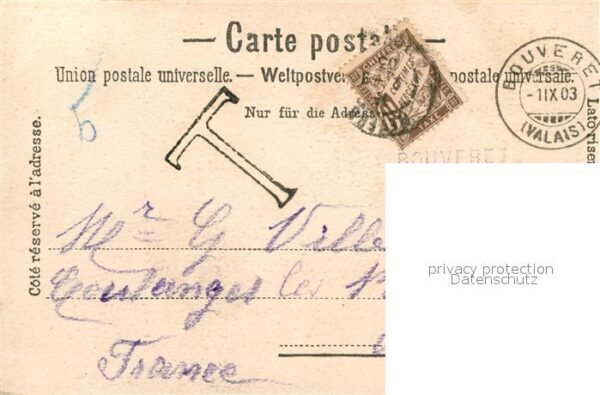 — Carte postal
Union postale universelle. — Weltpostver postale universale.
Nur für die Adress
BOUVERET
-1 IX 03
(VALAIS)
5
T
TAXE
BOUVERET
Côté réservé à l'adresse.
Lato riser
Mr G Ville
Coulanges les
France
privacy protection
Datenschutz